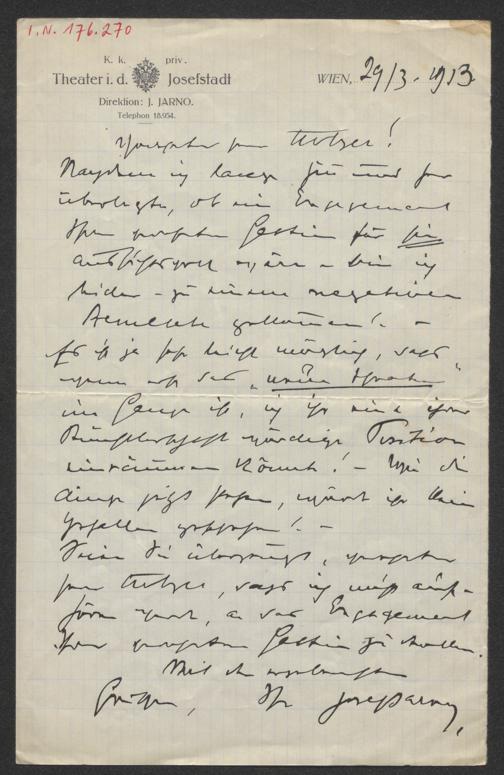 I.N. 176.270
K. k. priv.
Theater i. d. Josefstadt
Direktion: J. JARNO.
Telephon 18.954.
WIEN, 29/3. 1913
Verehrter Herr !
Nachdem ich lange hin und her
überlegte, ob ein Engagement
Ihrer verehrten Gattin für sie
aussichtsvoll wäre – bin ich
leider – zu einem negativen
gekommen! –
Es ist ja sehr leicht möglich, dass
wenn erst das „neue
im Gange ist, ich ihr eine ihrer
Künstlerschaft würdige Position
einräumen könnte! – Wie die
Dinge jetzt stehen, wäre ihr kein
Gefallen geschehen! –
Seien Sie überzeugt, verehrter
Herr , dass ich nicht auf-
hören werde, an das Engagement
Ihrer verehrten Gattin zu
Mit den ergebensten
Grüßen, Ihr Josef Jarno,